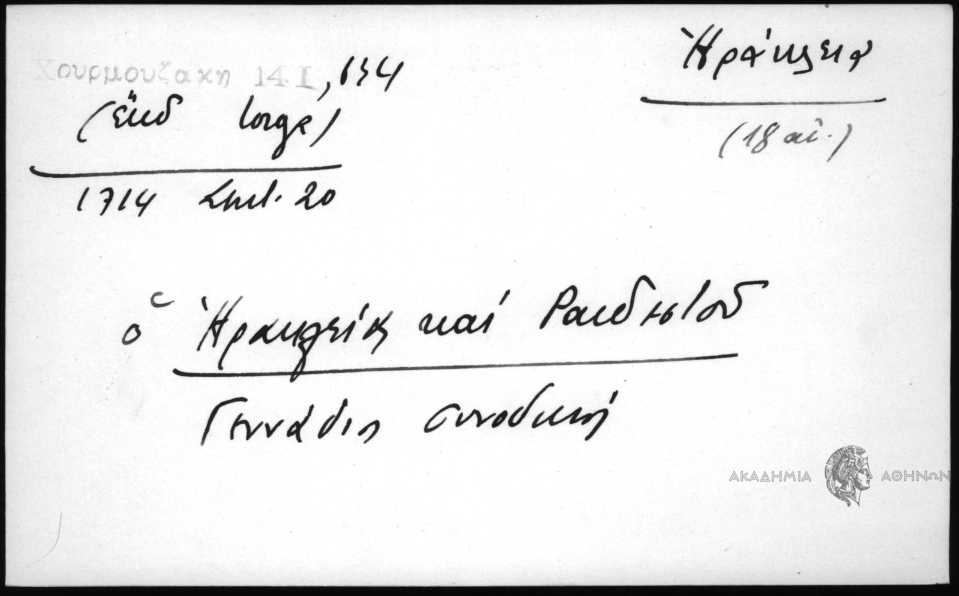 Χουρμουζάκη 14 I, 634
(ἔκδ Iorga)
1714 Σεπτ. 20
Ἡράκλεια
(18 αἰ.)
ὁ Ἡρακλείας καί Ραιδεστοῦ
Γεννάδιος συνοδική
ΑΚΑΔΗΜΙΑ ΑΘΗΝΩΝ